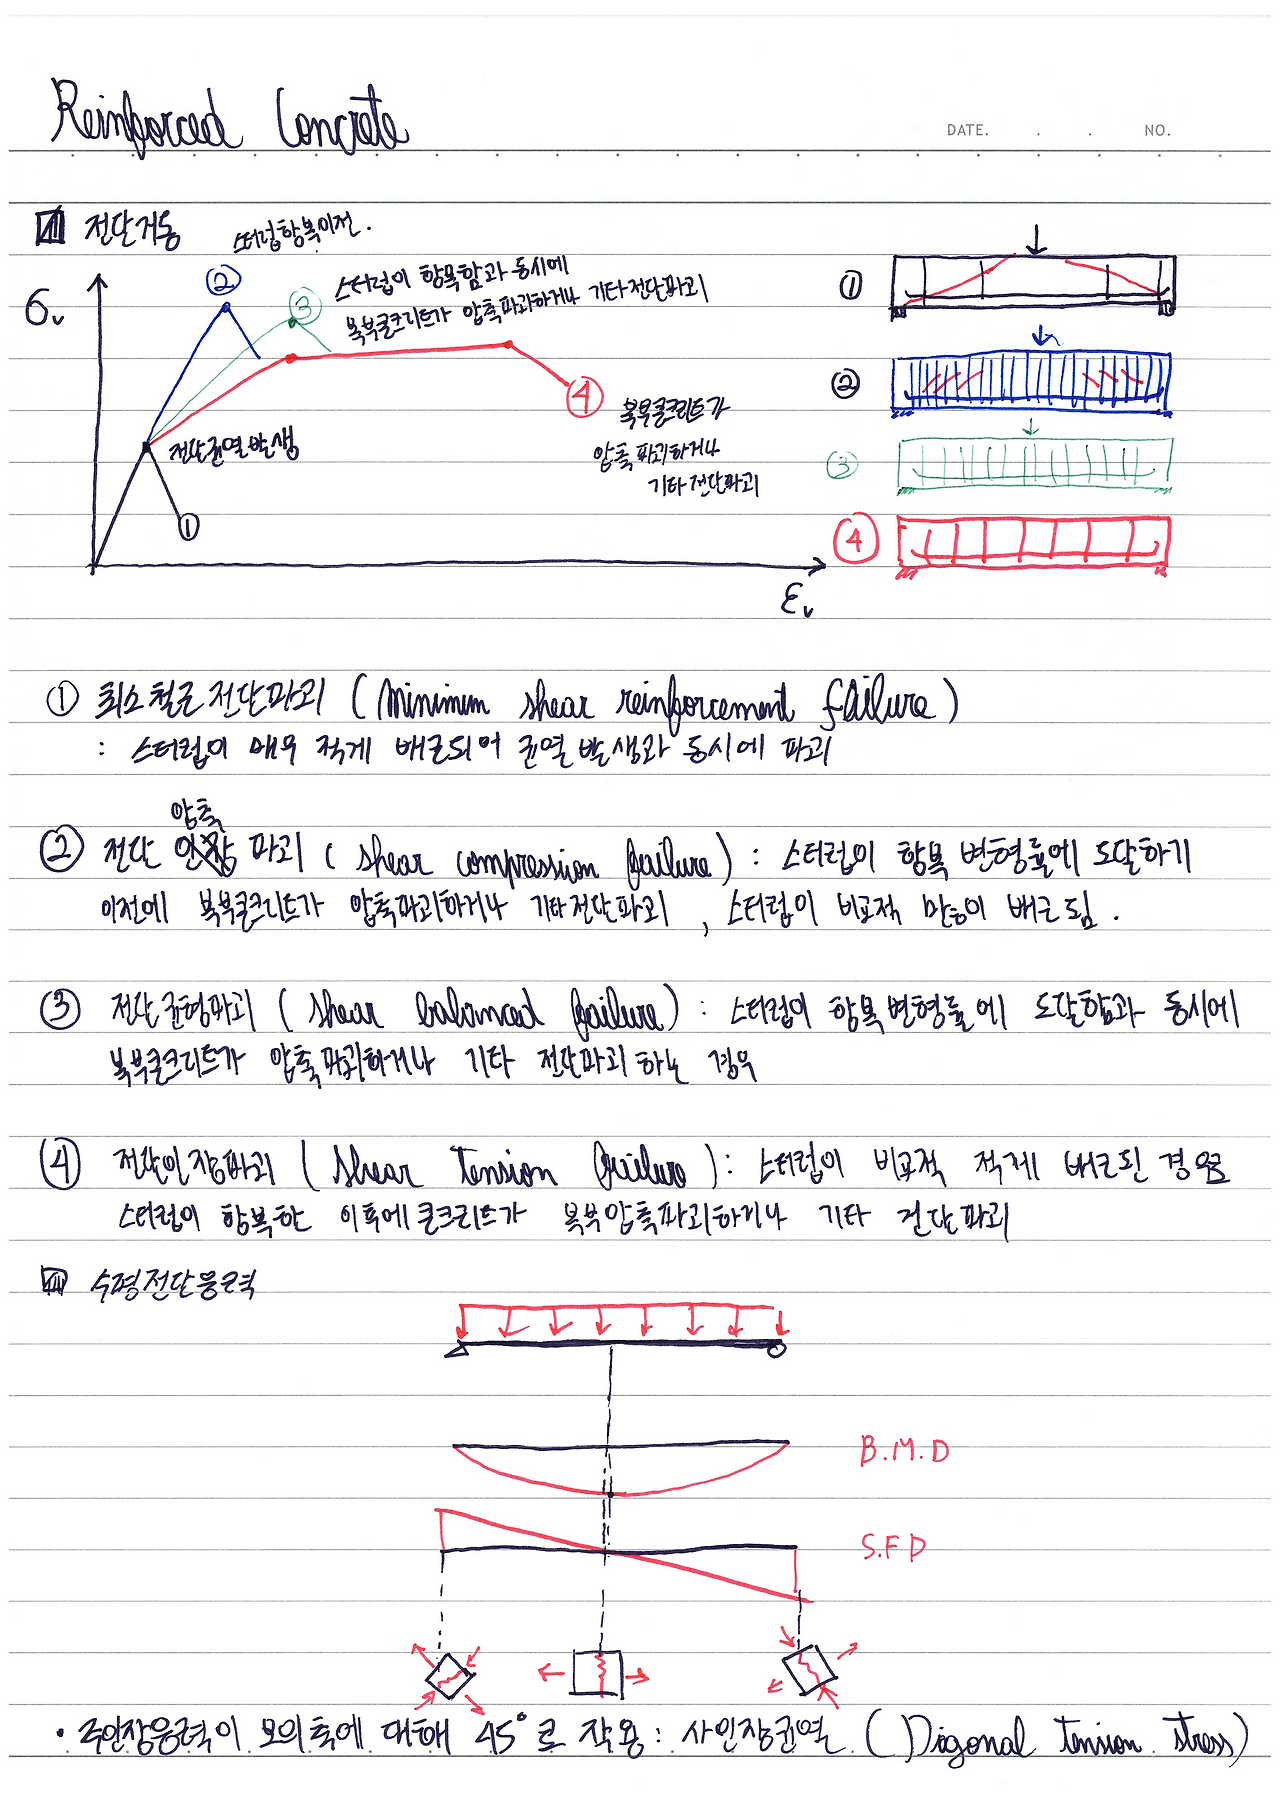 Reinforced Concrete
DATE. . . NO.
전단거동
스터럽항복이전.
σv
②
③
스터럽이 항복함과 동시에
복부콘크리트가 압축파괴하거나 기타전단파괴
④
복부콘크리트가
압축파괴하거나
기타전단파괴
전단균열발생
①
εv
①
②
③
④
① 최소철근전단파괴 (Minimum shear reinforcement failure)
: 스터럽이 매우 적게 배근되어 균열발생과 동시에 파괴
압축
② 전단 파괴 (shear compression failure) : 스터럽이 항복변형률에 도달하기
이전에 복부콘크리트가 압축파괴하거나 기타전단파괴, 스터럽이 비교적 많이 배근됨.
③ 전단균형파괴 (shear balanced failure) : 스터럽이 항복변형률에 도달함과 동시에
복부콘크리트가 압축파괴하거나 기타 전단파괴하는 경우
④ 전단인장파괴 (shear tension failure) : 스터럽이 비교적 적게 배근된 경우로
스터럽이 항복한 이후에 콘크리트가 복부압축파괴하거나 기타 전단파괴
수평전단응력
B.M.D
S.F.D
· 주인장응력이 보의축에 대해 45°로 작용 : 사인장균열 (Digonal tension stress)